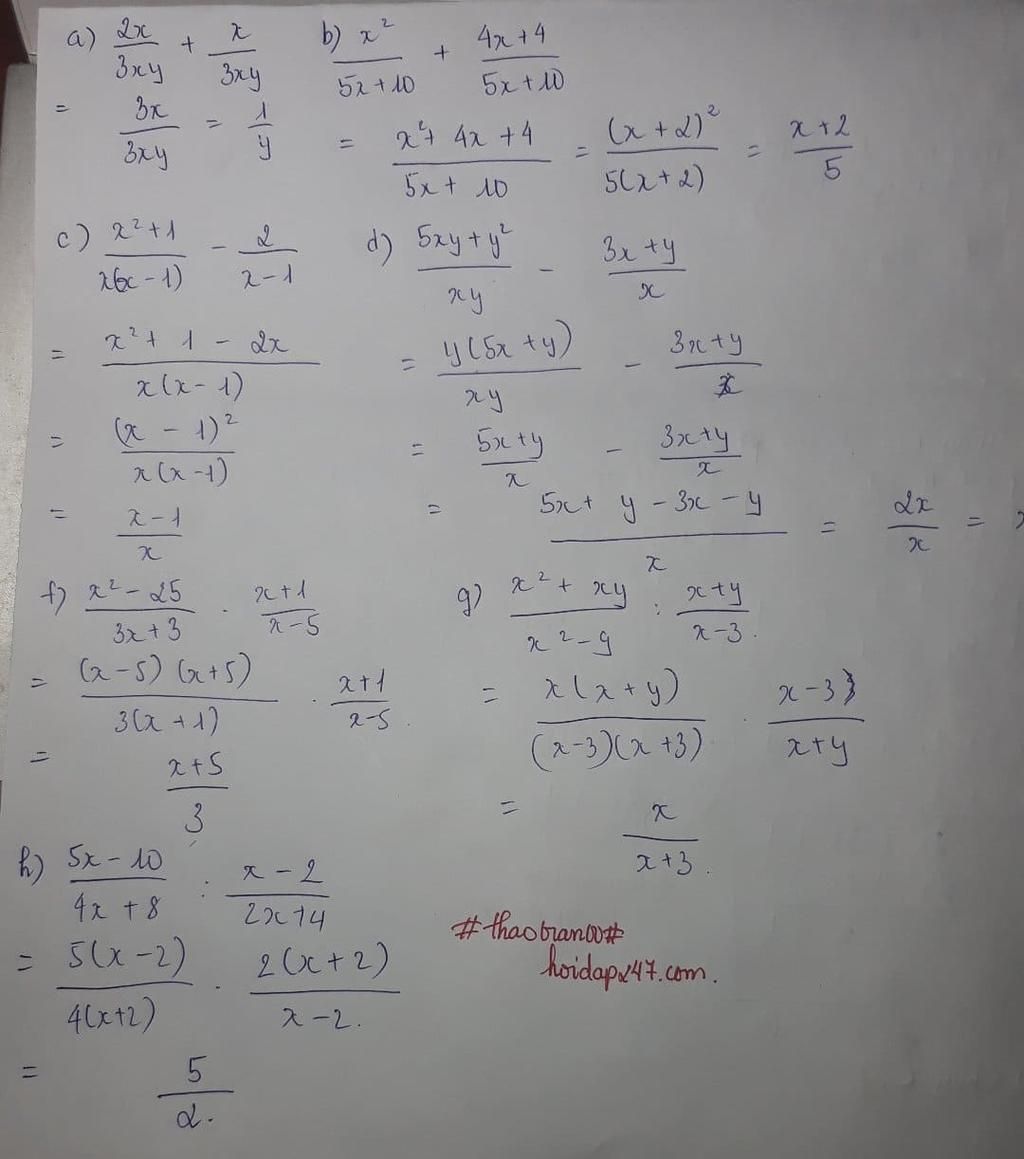 a) 2x/3xy + x/3xy
= 3x/3xy = 1/y
b) x²/5x+10 + 4x+4/5x+10
= x²+ 4x+4/5x+ 10 = (x+2)²/5(x+2) = x+2/5
c) x²+1/x(x-1) - 2/x-1
= x²+ 1 - 2x/x(x-1)
= (x-1)²/x(x-1)
= x-1/x
d) 5xy+y²/xy - 3x+y/x
= y(5x+y)/xy - 3x+y/x
= 5x+y/x - 3x+y/x
= 5x+ y-3x-y/x = 2x/x =
f) x²-25/3x+3 . x+1/x-5
= (x-5)(x+5)/3(x+1) . x+1/x-5.
= x+5/3
g) x²+ xy/x²-9 : x+y/x-3.
= x(x+y)/(x-3)(x+3) . x-3/x+y
= x/x+3.
h) 5x-10/4x+8 : x-2/2x+4
= 5(x-2)/4(x+2) . 2(x+2)/x-2.
= 5/2.
#thaotran00#
hoidap247.com.